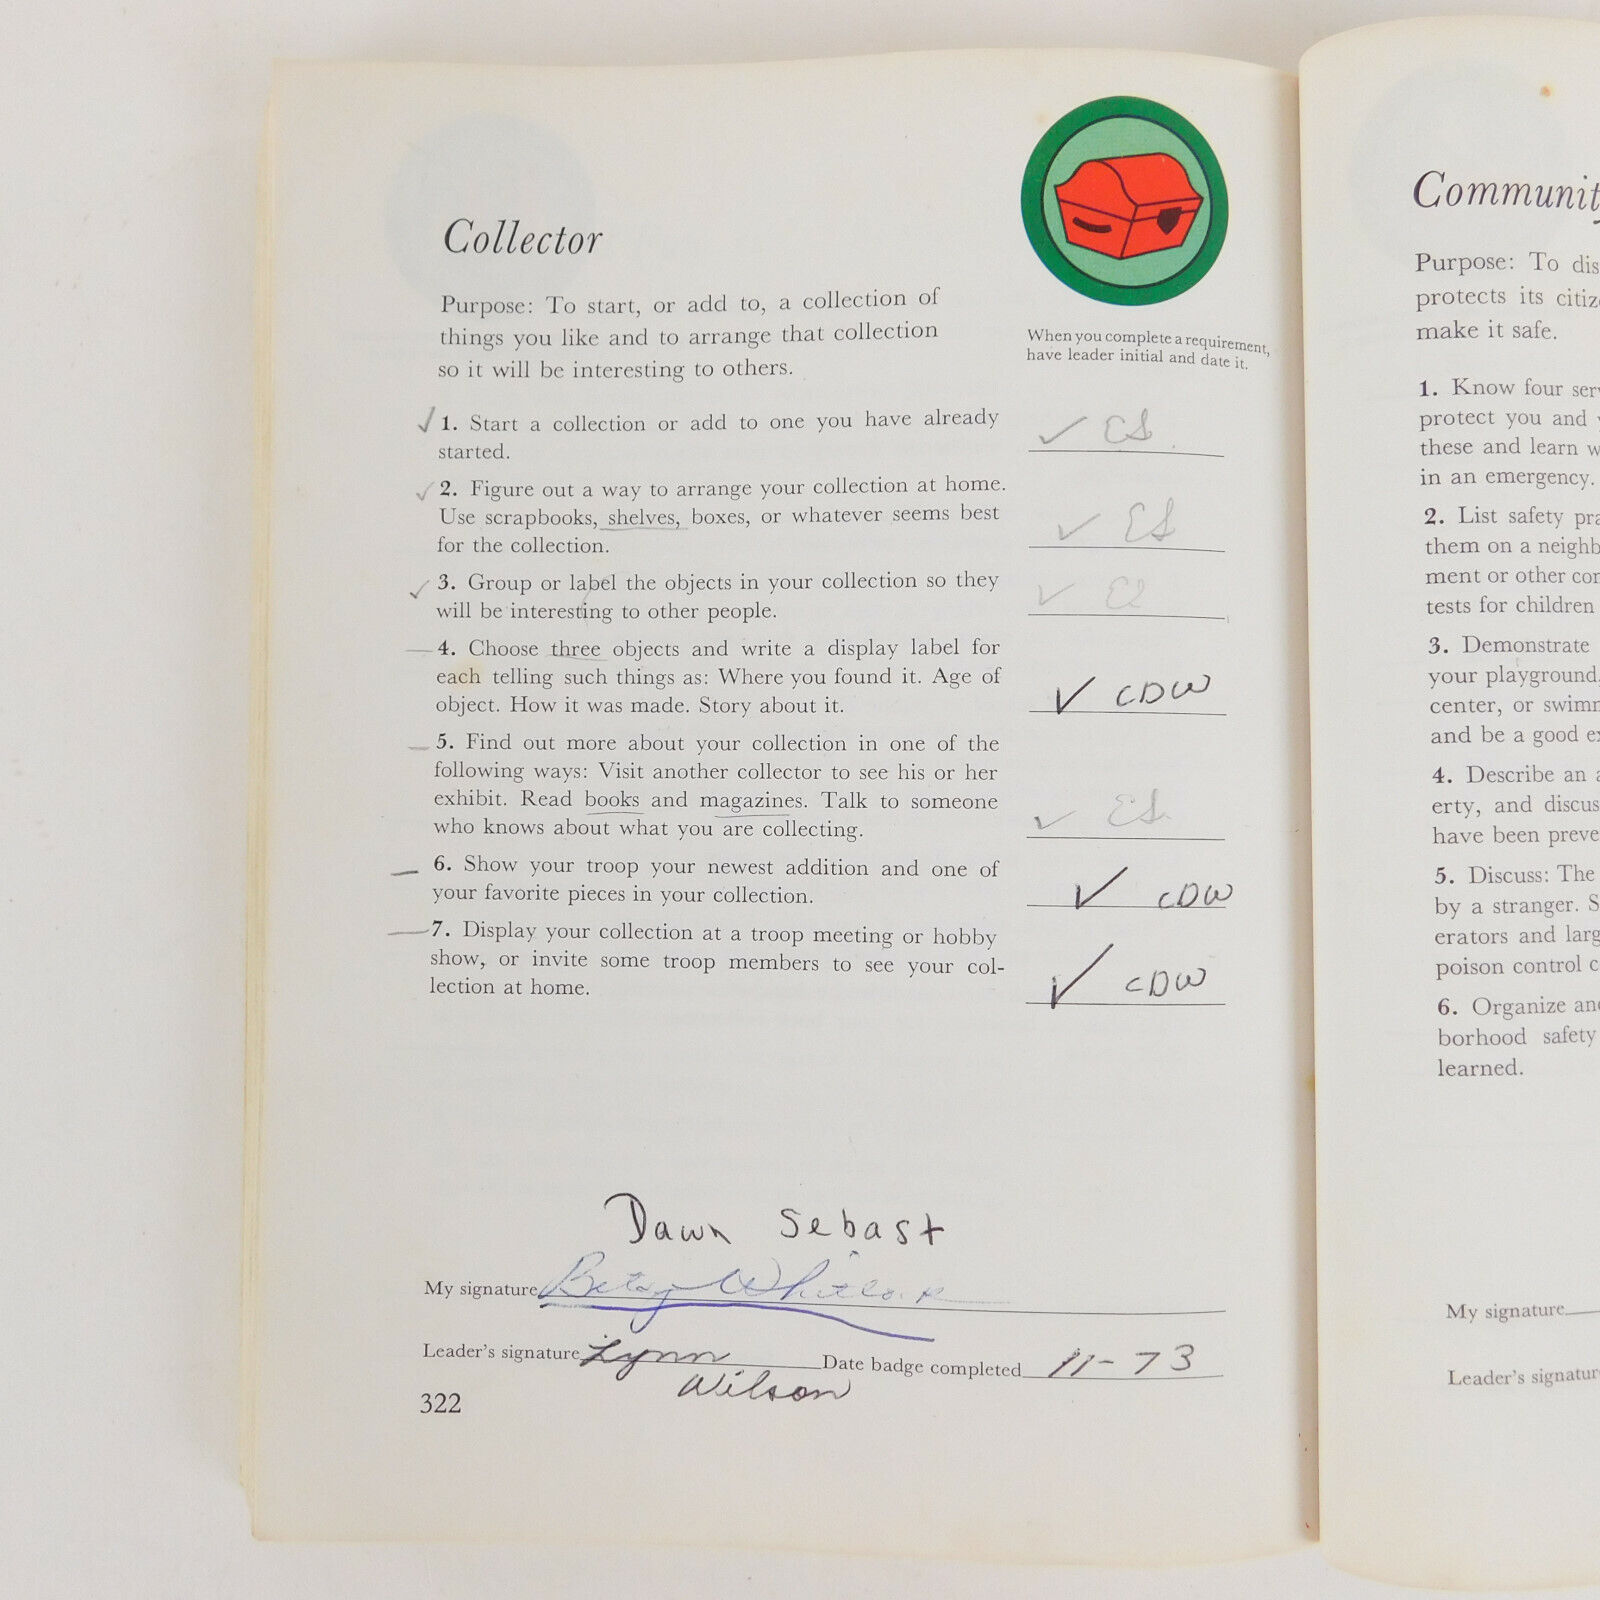 Collector
Purpose: To start, or add to, a collection of
things you like and to arrange that collection
so it will be interesting to others.
When you complete a requirement,
have leader initial and date it.
✓ 1. Start a collection or add to one you have already
started.
✓ ES
✓ 2. Figure out a way to arrange your collection at home.
Use scrapbooks, shelves, boxes, or whatever seems best
for the collection.
✓ ES
✓ 3. Group or label the objects in your collection so they
will be interesting to other people.
✓ ES
4. Choose three objects and write a display label for
each telling such things as: Where you found it. Age of
object. How it was made. Story about it.
✓ CDW
5. Find out more about your collection in one of the
following ways: Visit another collector to see his or her
exhibit. Read books and magazines. Talk to someone
who knows about what you are collecting.
✓ ES
6. Show your troop your newest addition and one of
your favorite pieces in your collection.
✓ CDW
7. Display your collection at a troop meeting or hobby
show, or invite some troop members to see your col-
lection at home.
✓ CDW
Dawn Sebast
My signature Betsy Whitlock
Leader's signature Lynn Date badge completed 11-73
Wilson
322
Community
Purpose: To dis
protects its citiz
make it safe.
1. Know four ser
protect you and y
these and learn w
in an emergency.
2. List safety pra
them on a neighb
ment or other con
tests for children
3. Demonstrate
your playground,
center, or swimm
and be a good ex
4. Describe an a
erty, and discus
have been preve
5. Discuss: The
by a stranger. S
erators and larg
poison control c
6. Organize and
borhood safety
learned.
My signature
Leader's signatur